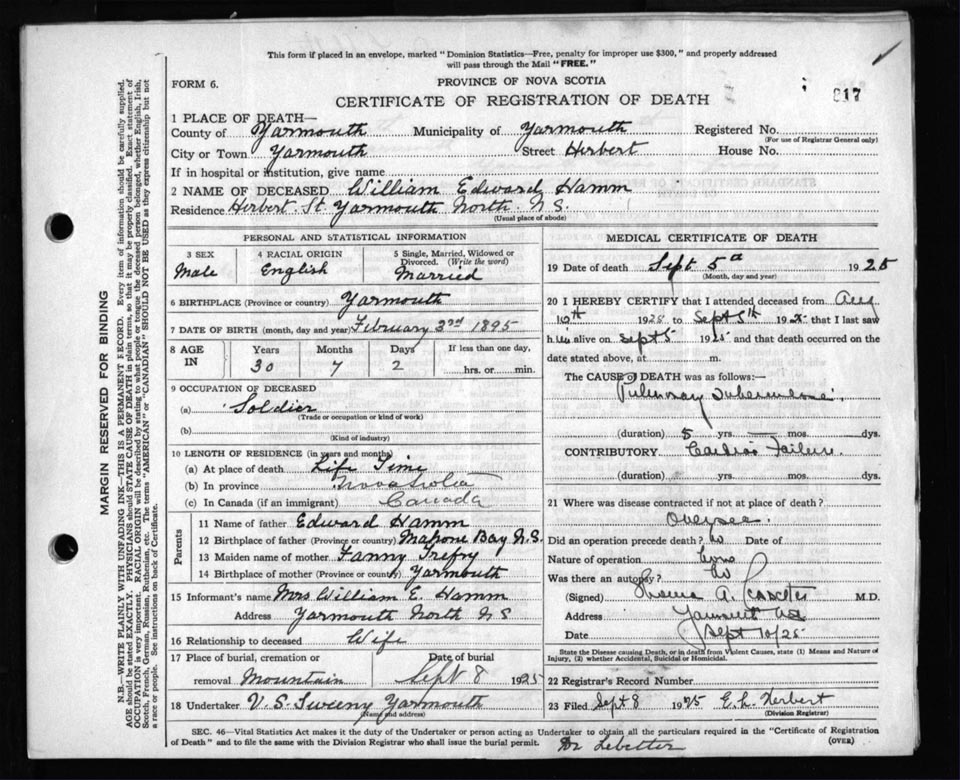 This form if placed in an envelope, marked "Dominion Statistics—Free, penalty for improper use $300," and properly addressed
will pass through the Mail "FREE."
FORM 6.
PROVINCE OF NOVA SCOTIA
817
CERTIFICATE OF REGISTRATION OF DEATH
1 PLACE OF DEATH—
County of Yarmouth Municipality of Yarmouth Registered No.
(For use of Registrar General only)
City or Town Yarmouth Street Herbert House No.
If in hospital or institution, give name
2 NAME OF DECEASED William Edward Hamm
Residence Herbert St. Yarmouth North N.S.
(Usual place of abode)
PERSONAL AND STATISTICAL INFORMATION
3 SEX 4 RACIAL ORIGIN 5 Single, Married, Widowed or
Divorced. (Write the word)
Male English Married
6 BIRTHPLACE (Province or country) Yarmouth
7 DATE OF BIRTH (month, day and year) February 3rd 1895
8 AGE IN Years Months Days If less than one day,
30 7 2 hrs. or min.
9 OCCUPATION OF DECEASED
(a) Soldier
(Trade or occupation or kind of work)
(b)
(Kind of industry)
10 LENGTH OF RESIDENCE (in years and months)
(a) At place of death Life Time
(b) In province Nova Scotia
(c) In Canada (if an immigrant) Canada
Parents
11 Name of father Edward Hamm
12 Birthplace of father (Province or country) Mahone Bay N.S.
13 Maiden name of mother Fanny Trefry
14 Birthplace of mother (Province or country) Yarmouth
15 Informant's name Mrs William E. Hamm
Address Yarmouth North NS
16 Relationship to deceased Wife
17 Place of burial, cremation or Date of burial
removal Mountain Sept 8 1925
18 Undertaker V. S. Sweeny Yarmouth
(Name and address)
MEDICAL CERTIFICATE OF DEATH
19 Date of death Sept 5th 1925
(Month, day and year)
20 I HEREBY CERTIFY that I attended deceased from Aug
10th 1925 to Sept 5th 192 that I last saw
h im alive on Sept 5 1925 and that death occurred on the
date stated above, at m.
The CAUSE of DEATH was as follows:—
Pulmonary Tuberculosis
(duration) 5 yrs. — mos. dys.
CONTRIBUTORY Cardiac Failure
(duration) yrs. mos. dys.
21 Where was disease contracted if not at place of death?
Oversea.
Did an operation precede death? No Date of
Nature of operation
Was there an autopsy? No
(Signed) A. M.D.
Address Yarmouth
Date Sept 10/25
State the Disease causing Death, or in death from Violent Causes, state (1) Means and Nature of
Injury, (2) whether Accidental, Suicidal or Homicidal.
22 Registrar's Record Number
23 Filed Sept 8 1925 E. L. Herbert
(Division Registrar)
SEC. 46—Vital Statistics Act makes it the duty of the Undertaker or person acting as Undertaker to obtain all the particulars required in the "Certificate of Registration
of Death" and to file the same with the Division Registrar who shall issue the burial permit. (OVER)
Dr Lebetter
MARGIN RESERVED FOR BINDING
N.B.—WRITE PLAINLY WITH UNFADING INK—THIS IS A PERMANENT RECORD. Every item of information should be carefully supplied.
AGE should be stated EXACTLY. PHYSICIANS should STATE CAUSE OF DEATH in plain terms, so that it may be properly classified. Exact statement of
OCCUPATION is very important. RACIAL ORIGIN will be described by stating to what people or tongue the deceased person belonged, whether English, Irish,
Scotch, French, German, Russian, Ruthenian, etc. The terms "AMERICAN" or "CANADIAN" SHOULD NOT BE USED as they express citizenship but not
a race or people. See instructions on back of Certificate.